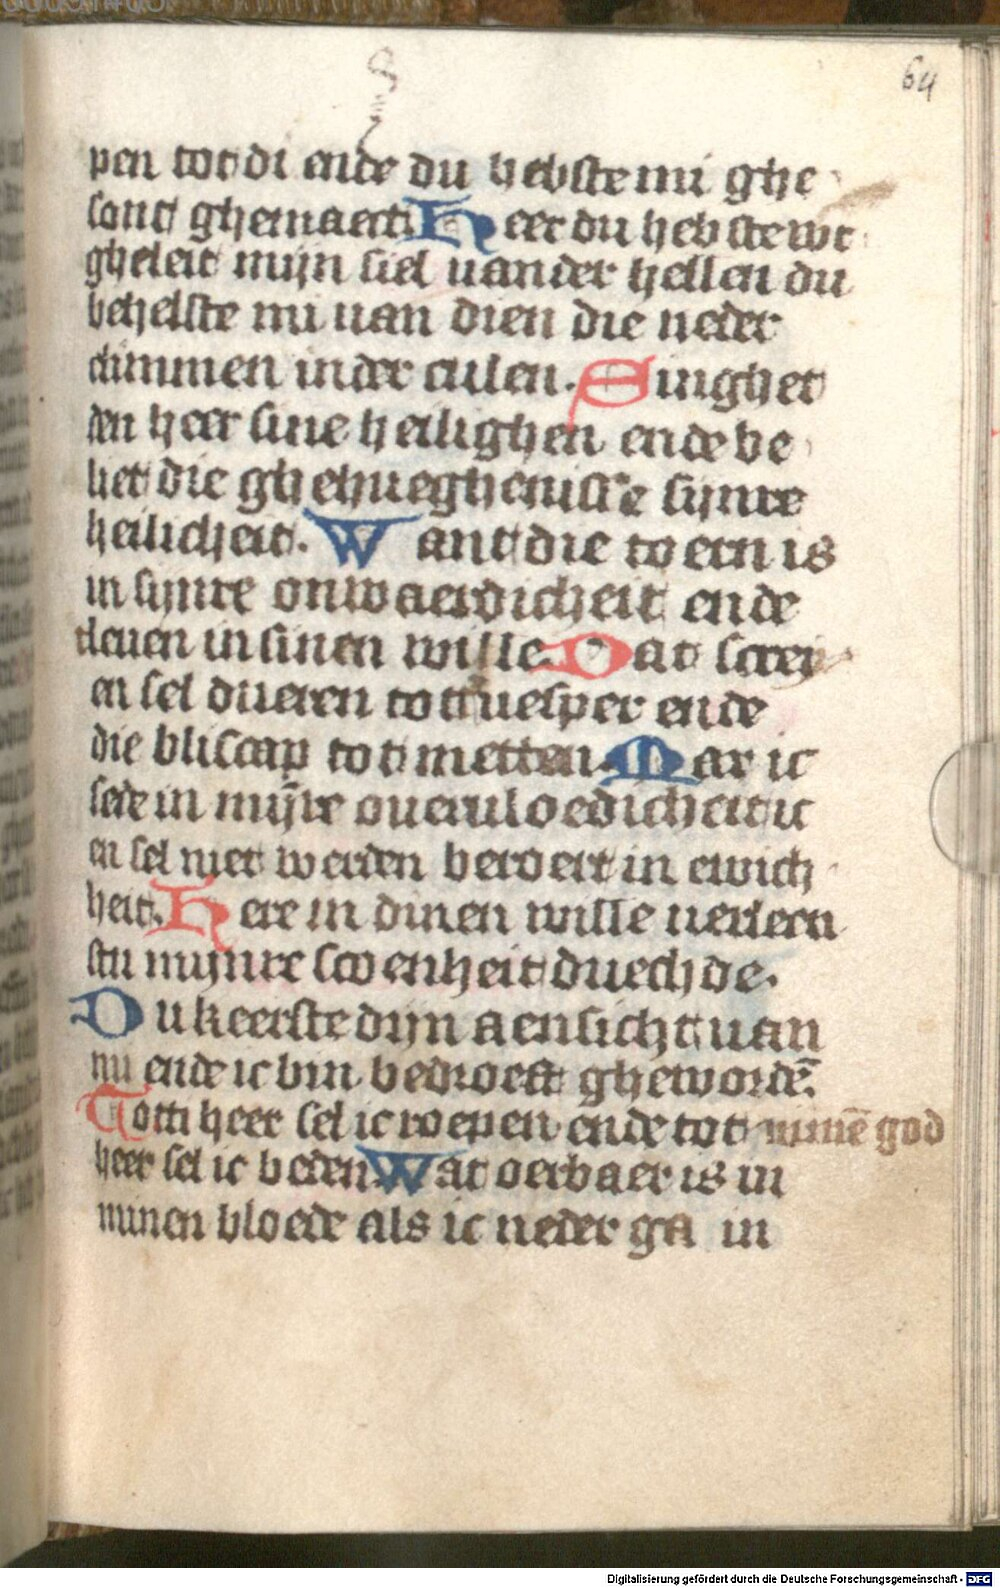 64
pen tot di ende du hebste mi ghe
sont ghemaect Heer du hebste wt
gheleit mijn siel uander hellen du
behelste mi uan dien die neder
climmen inder culen. Singhet
den heer sine heilighen ende be
liet die ghehueghenisse sijnre
heilicheit. Want die toern is
in sijnre onwaerdicheit ende
tleuen in sinen wille. Dat screy
en sel dueren tot uesper ende
die bliscap tot metten. Mar ic
sede in mijre oueruloedicheit ic
en sel niet werden beroert in ewich
heit. Here in dinen wille uerleen
stu mijnre scoenheit duechde.
Du keerste dijn aensicht uan
mi ende ic bin bedroeft ghewordē.
Totti heer sel ic roepen ende tot minē god
heer sel ic beden Wat oerbaer is in
minen bloede als ic neder ga in
Digitalisierung gefördert durch die Deutsche Forschungsgemeinschaft - DFG